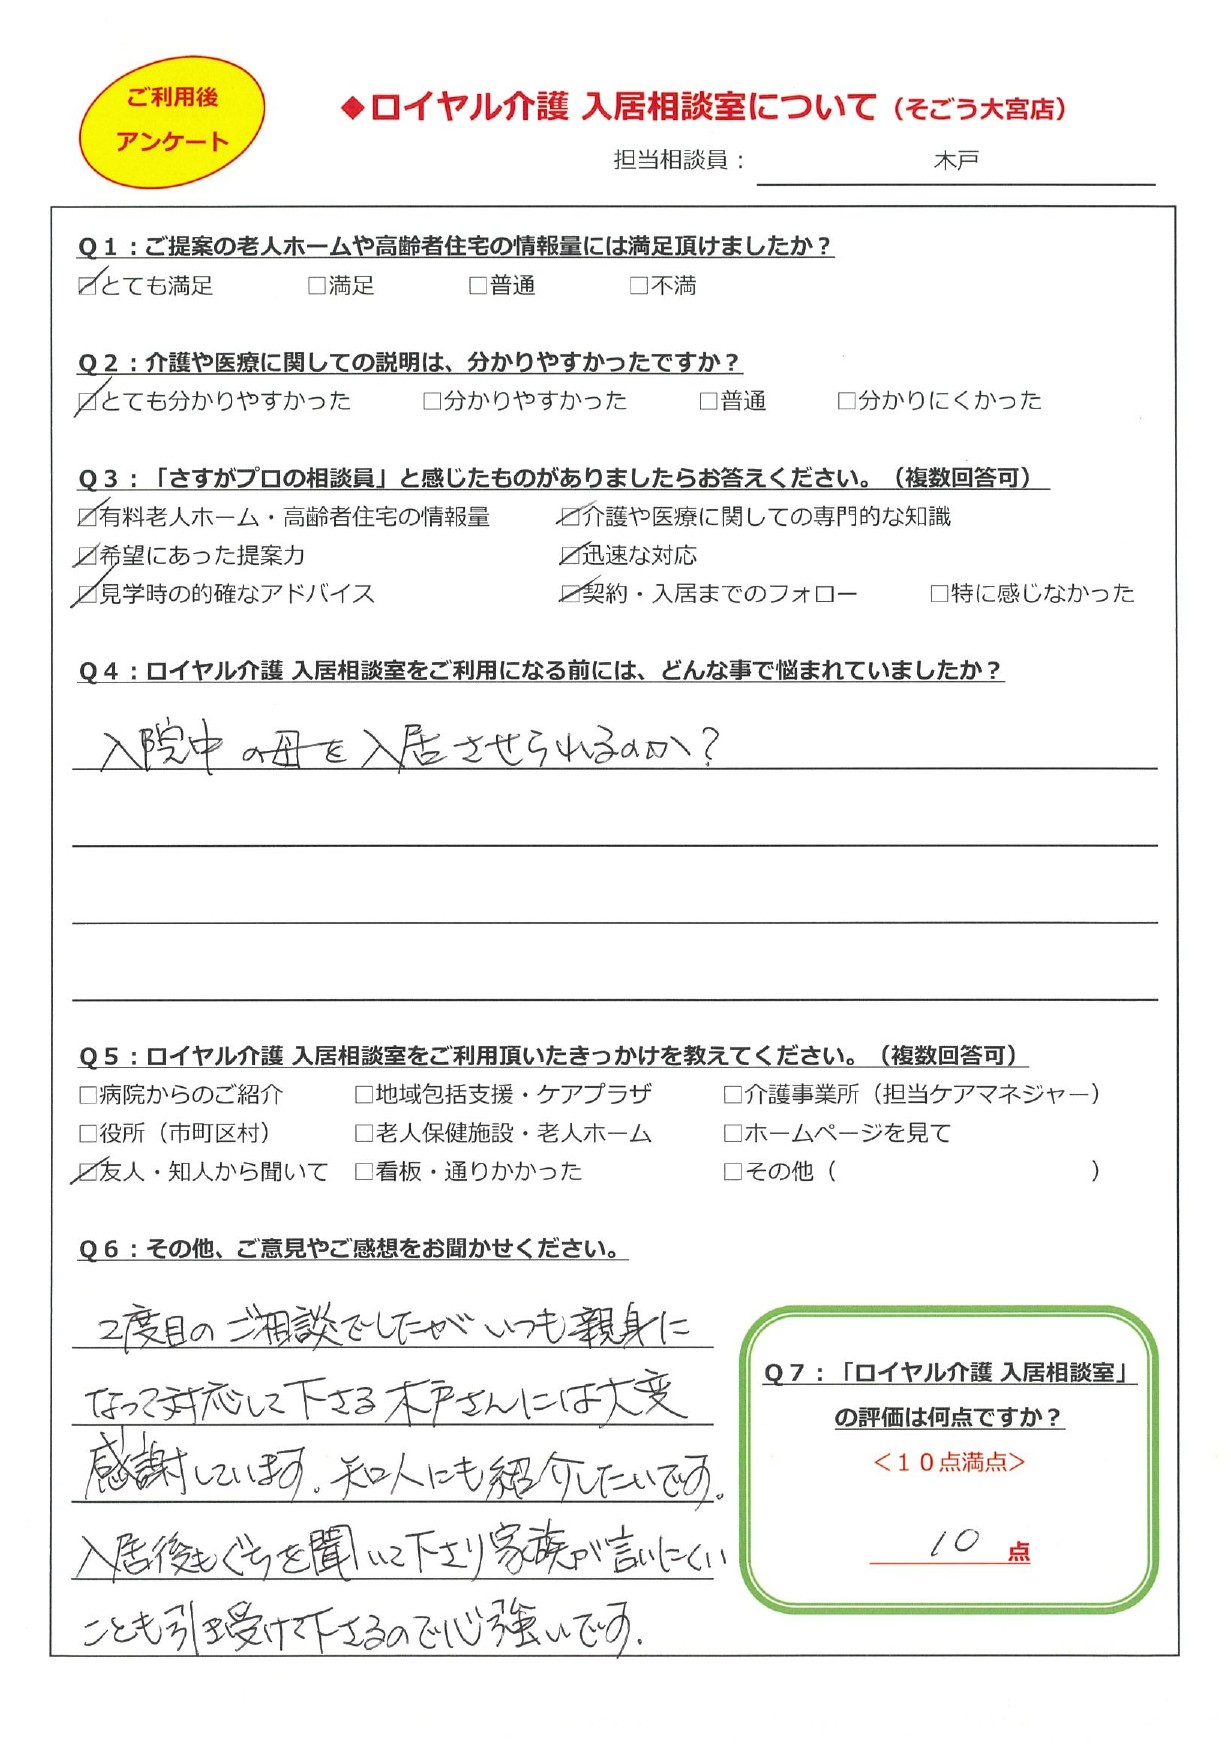 ご利用後
アンケート
◆ロイヤル介護 入居相談室について（そごう大宮店）
担当相談員： 木戸
Ｑ１：ご提案の老人ホームや高齢者住宅の情報量には満足頂けましたか？
☑とても満足 □満足 □普通 □不満
Ｑ２：介護や医療に関しての説明は、分かりやすかったですか？
☑とても分かりやすかった □分かりやすかった □普通 □分かりにくかった
Ｑ３：「さすがプロの相談員」と感じたものがありましたらお答えください。（複数回答可）
☑有料老人ホーム・高齢者住宅の情報量 ☑介護や医療に関しての専門的な知識
☑希望にあった提案力 ☑迅速な対応
☑見学時の的確なアドバイス ☑契約・入居までのフォロー □特に感じなかった
Ｑ４：ロイヤル介護 入居相談室をご利用になる前には、どんな事で悩まれていましたか？
入院中の母を入居させられるのか？
Ｑ５：ロイヤル介護 入居相談室をご利用頂いたきっかけを教えてください。（複数回答可）
□病院からのご紹介 □地域包括支援・ケアプラザ □介護事業所（担当ケアマネジャー）
□役所（市町区村） □老人保健施設・老人ホーム □ホームページを見て
☑友人・知人から聞いて □看板・通りかかった □その他（ ）
Ｑ６：その他、ご意見やご感想をお聞かせください。
2度目のご相談でしたがいつも親身に
なって対応して下さる木戸さんには大変
感謝しています。知人にも紹介したいです。
入居後もぐちを聞いて下さり家族が言いにくい
ことも引き受けて下さるので心強いです。
Ｑ７：「ロイヤル介護 入居相談室」
の評価は何点ですか？
＜１０点満点＞
10 点